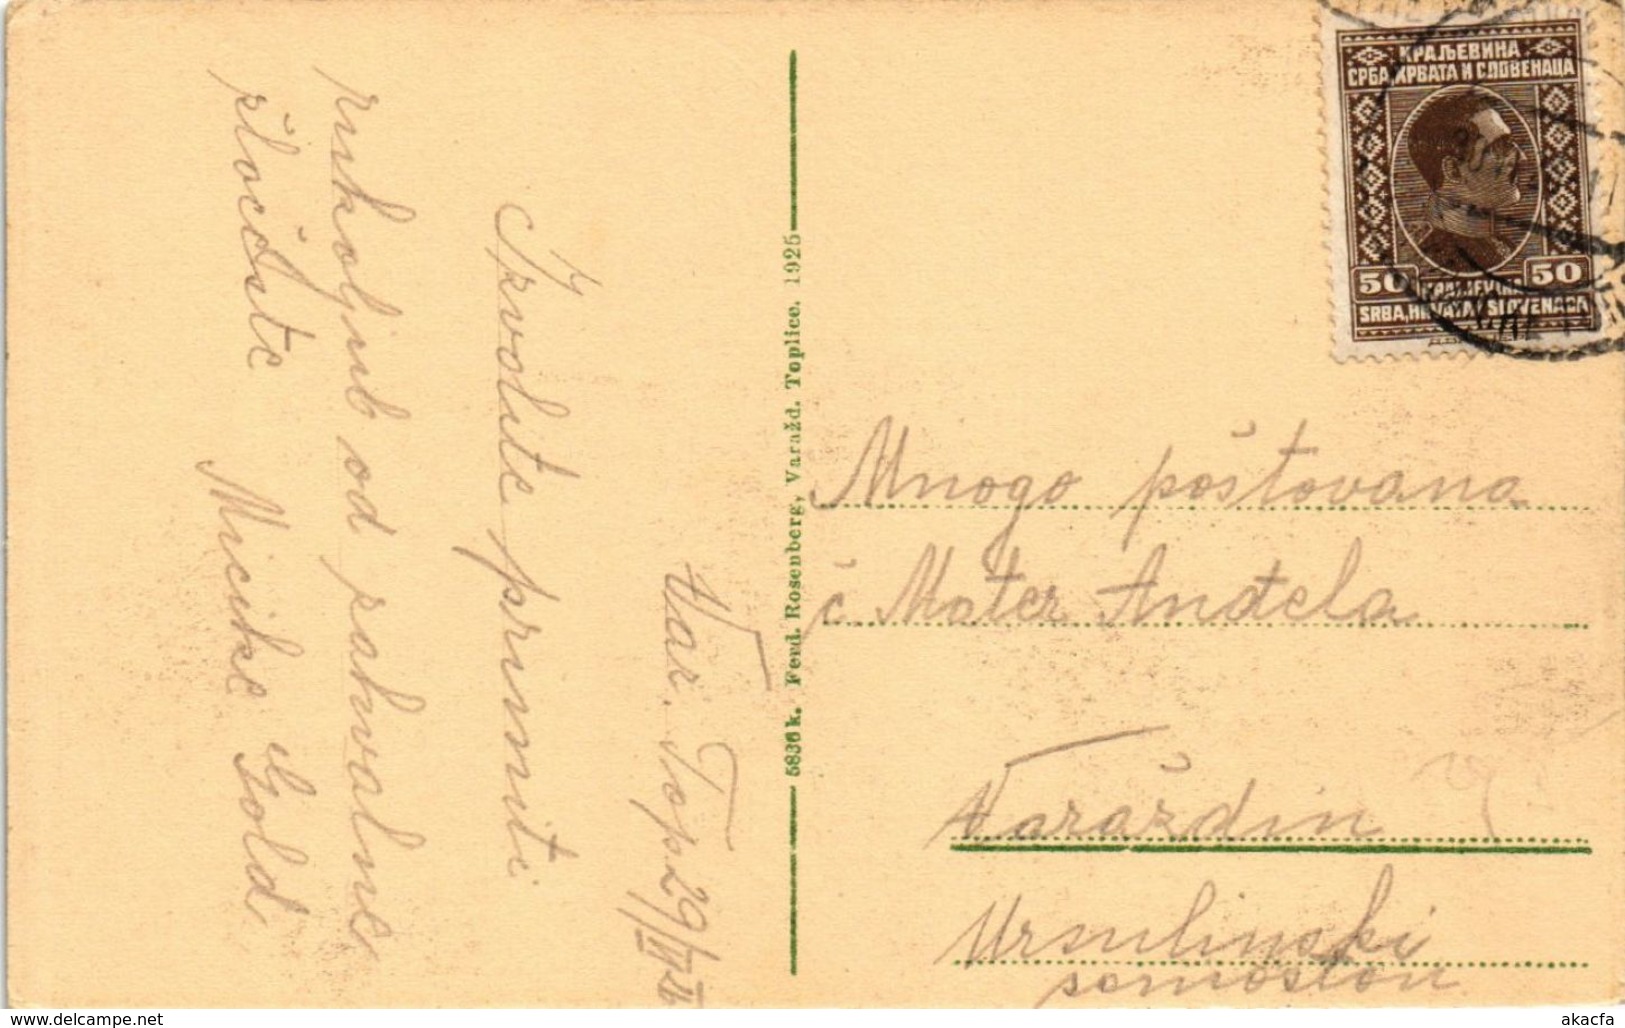 Var. Top. 29/VII 26
Izvolite primiti
rukoljub od zahvalne
zločeste Micike Gold
5836 k. Ferd. Rosenberg, Varažd. Toplice. 1925
КРАЉЕВИНА
СРБА, ХРВАТА И СЛОВЕНАЦА
50 50
KRALJEVINA
SRBA, HRVATA I SLOVENACA
Mnogo poštovana
č. Mater Anđela
Varaždin
Ursulinski
samostan
delcampe.net
akacfa